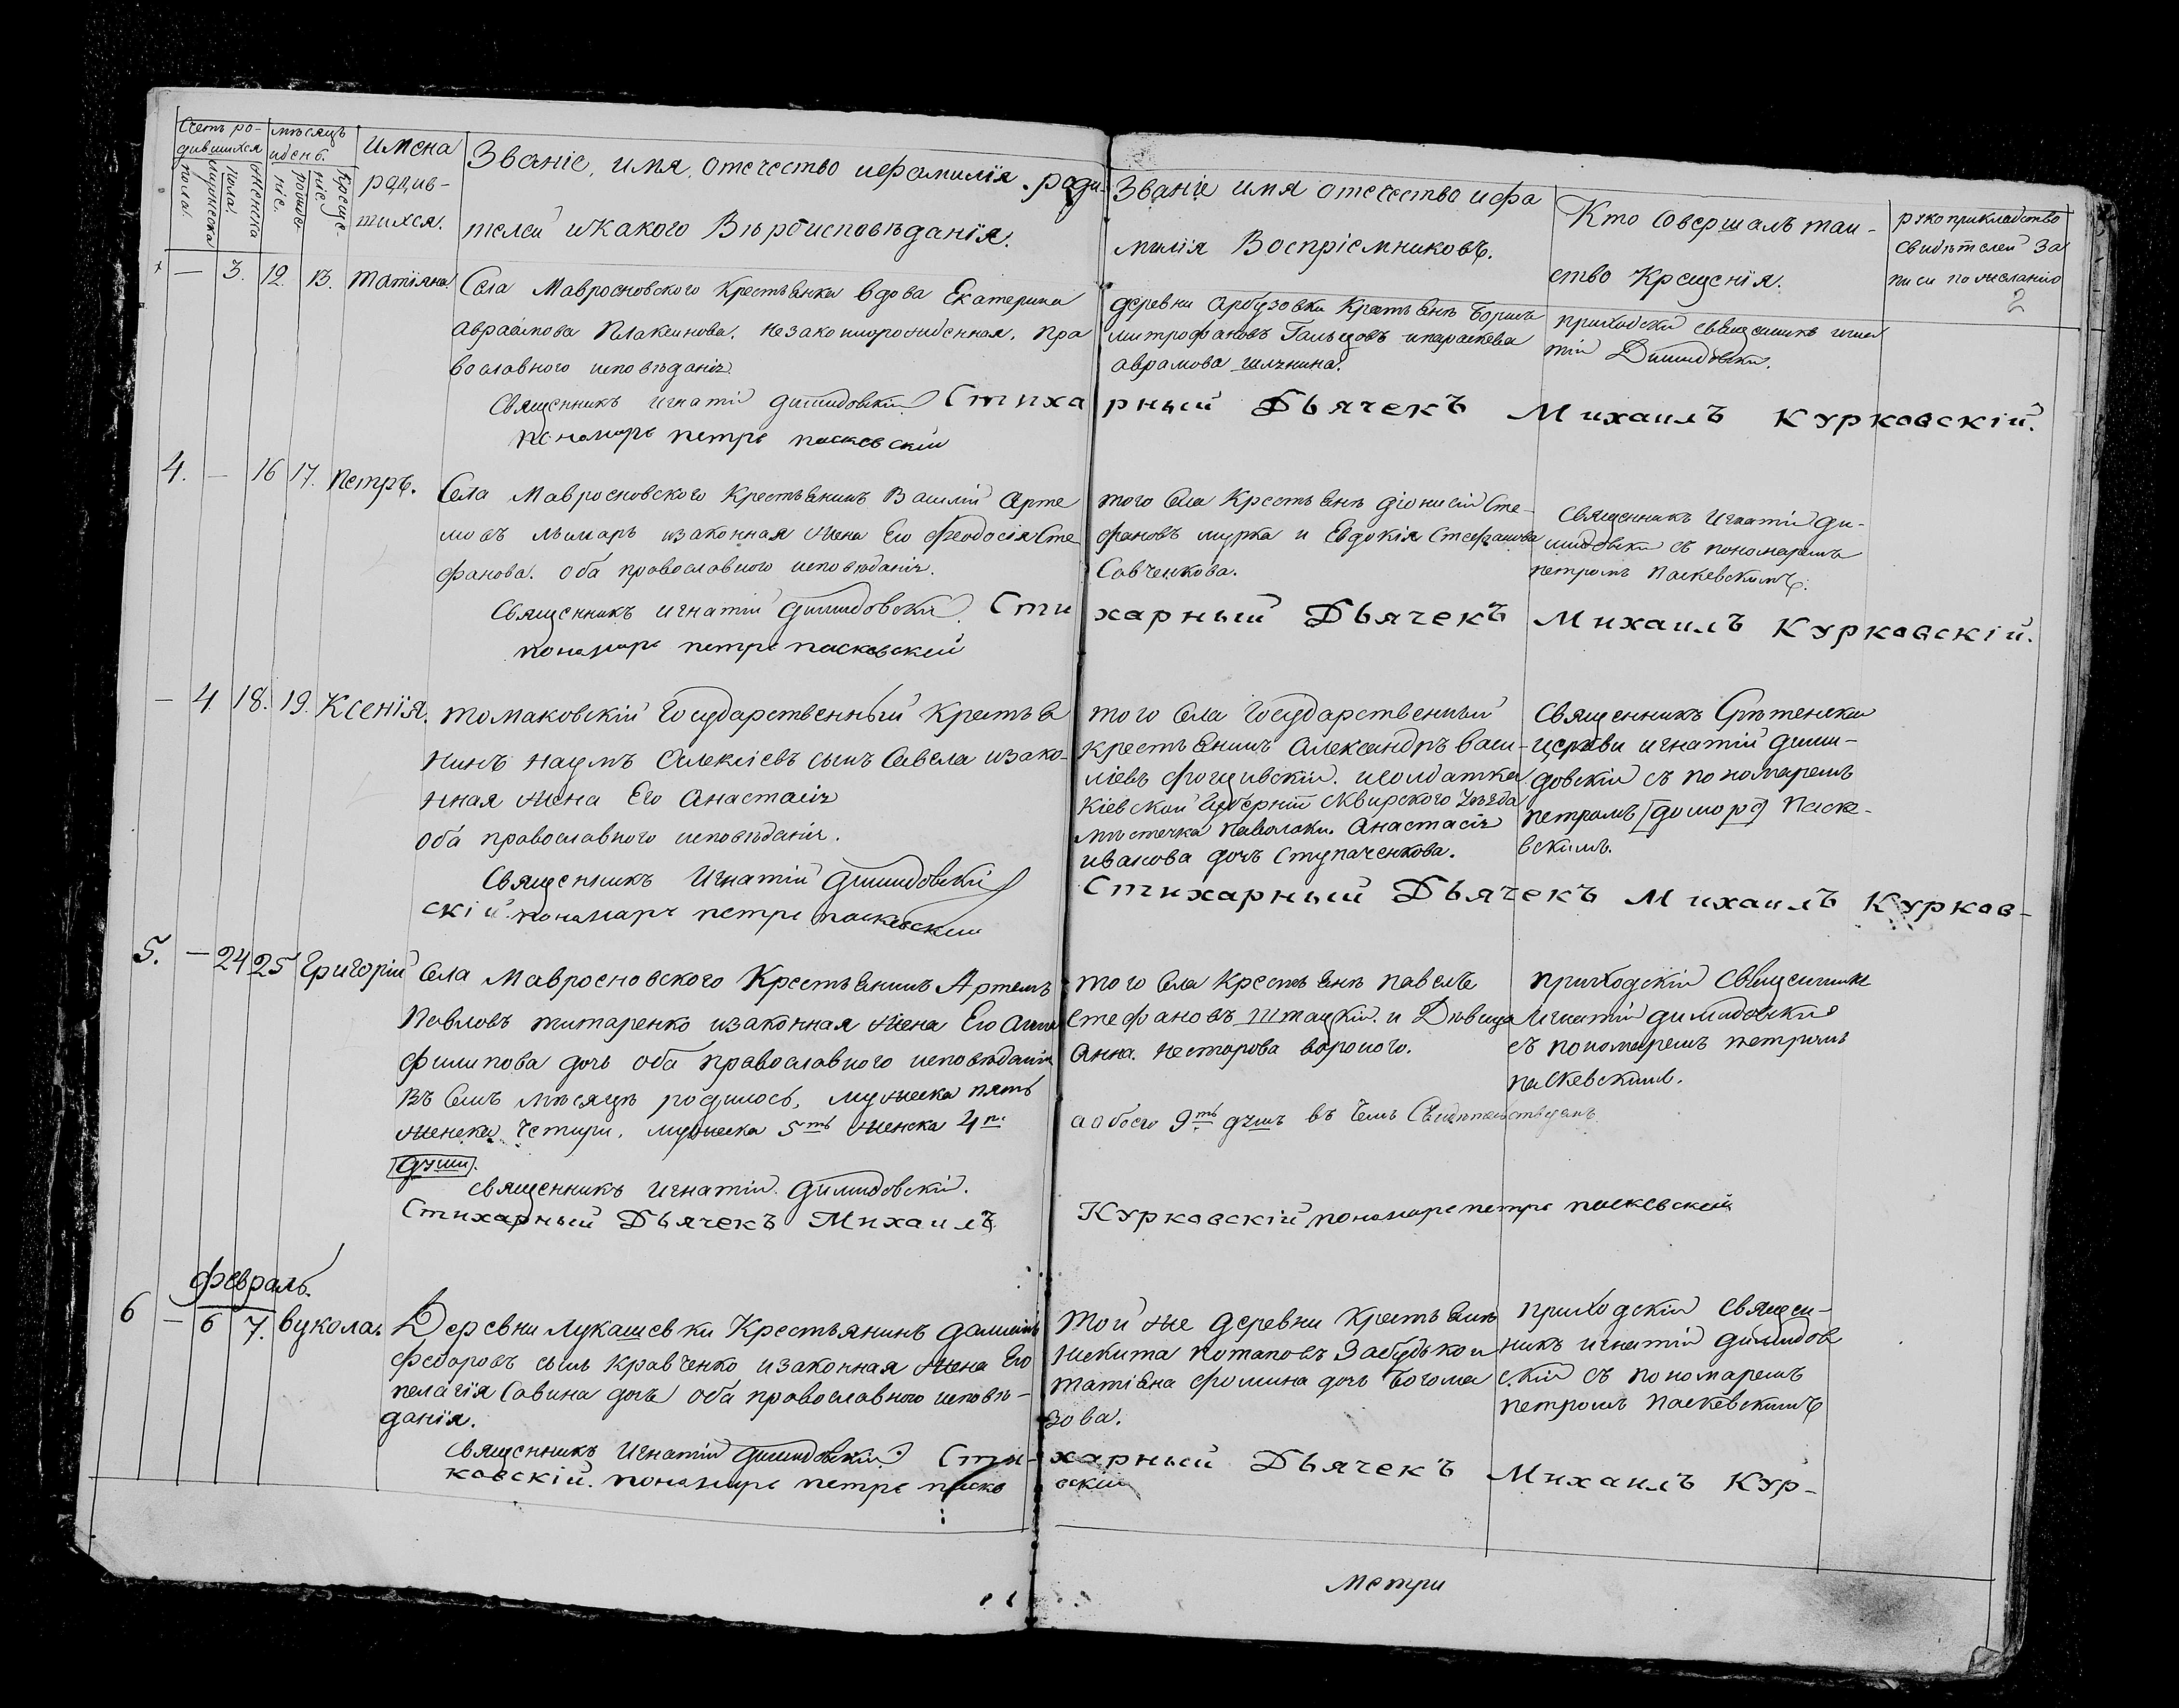 Счетъ ро-
дившихся
мѣсяцъ
и день.
Имена
родив-
шихся.
мужеска
пола.
Женска
пола.
рожде-
ніе.
Креще-
ніе.
Званіе, имя, отечество и фамилія роди
телей и какого Вѣроисповѣданія.
Званіе имя отечество и фа
милія Воспріемниковъ.
Кто совершалъ таи-
ство Крещенія.
рукоприкладство
свидѣтелей за
писи по желанію
2
— 3. 12. 13. Татіяна
Села Мавросновского Крестьянка вдова Екатерина
Авраамова Плаксинова. незаконнорожденная. пра
вославного исповѣданія.
деревни Арбузовки Крестьянъ Борисъ
Митрофановъ и параскева
аврамова
приходскій священникъ игна
тій Димидовскій.
Священникъ игнатій димидовскій. Стиха рный Дьячекъ Михаилъ Курковскій.
пономарь петръ паскевскій
4. — 16 17. Петръ.
Села Мавросновского Крестьянинъ Василій Арте
мовъ лымарь и законная жена Его Феодосія Сте
фанова. оба православного исповѣданія.
того села Крестьянъ діонисій Сте-
фановъ мурка и Евдокія Стефанова
Савченкова.
Священникъ Игнатій ди-
мидовскій съ пономаремъ
петромъ Паскевскимъ.
Священникъ игнатій димидовскій. Сти харный Дьячекъ Михаилъ Курковскій.
пономарь петръ паскевскій
— 4 18. 19. Ксенія.
томаковскій Государственный Крестья
нинъ Наумъ Алексіевъ сынъ Савела и зако-
нная жена Его Анастасія
оба православного исповѣданія.
того села Государственный
крестьянинъ Александръ васи-
ліевъ и солдатка
Кіевской Губерніи Сквирского Уѣзда
мѣстечка паволоки Анастасія
иванова дочь Ступаченкова.
Священникъ Срѣтенской
церкви игнатій дими-
довскій съ пономаремъ
петромъ Паске-
вскимъ.
Священникъ Игнатій димидовскій
Стихарный Дьячекъ Михаилъ Курков-
скій. пономарь петръ паскевскій
5. — 24 25 Григорій
Села Мавросновского Крестьянинъ Артемъ
Павловъ титаренко и законная жена Его Анна
филипова дочь оба православного исповѣданія
Въ семъ мѣсяцѣ родилось, мужеска пять
женска четыри, мужеска 5ть женска 4ри
души.
того села Крестьянъ павелъ
Стефановъ и Дѣвица
Анна. несторова вороного.
а обоего 9ть душъ въ чемъ Свидѣтельствуемъ
приходскій священникъ
Игнатій димидовскій
съ пономаремъ петромъ
паскевскимъ.
священникъ игнатій димидовскій.
Стихарный Дьячекъ Михаилъ Курковскій пономарь петръ паскевскій
Февраль.
6 — 6 7. вукола.
Деревни Лукашевки Крестьянинъ
федоровъ сынъ кравченко и законная жена Его
пелагія Савина дочь оба православного исповѣ-
данія.
той же деревни Крестьянъ
никита потаповъ Забудько и
татіана фомина дочь Богома
зова.
приходскій священ-
никъ игнатій димидов
скій съ пономаремъ
петромъ паскевскимъ
священникъ Игнатій димидовскій. Сти- харный Дьячекъ Михаилъ Кур-
ковскій. пономарь петръ паске вскій
Метри